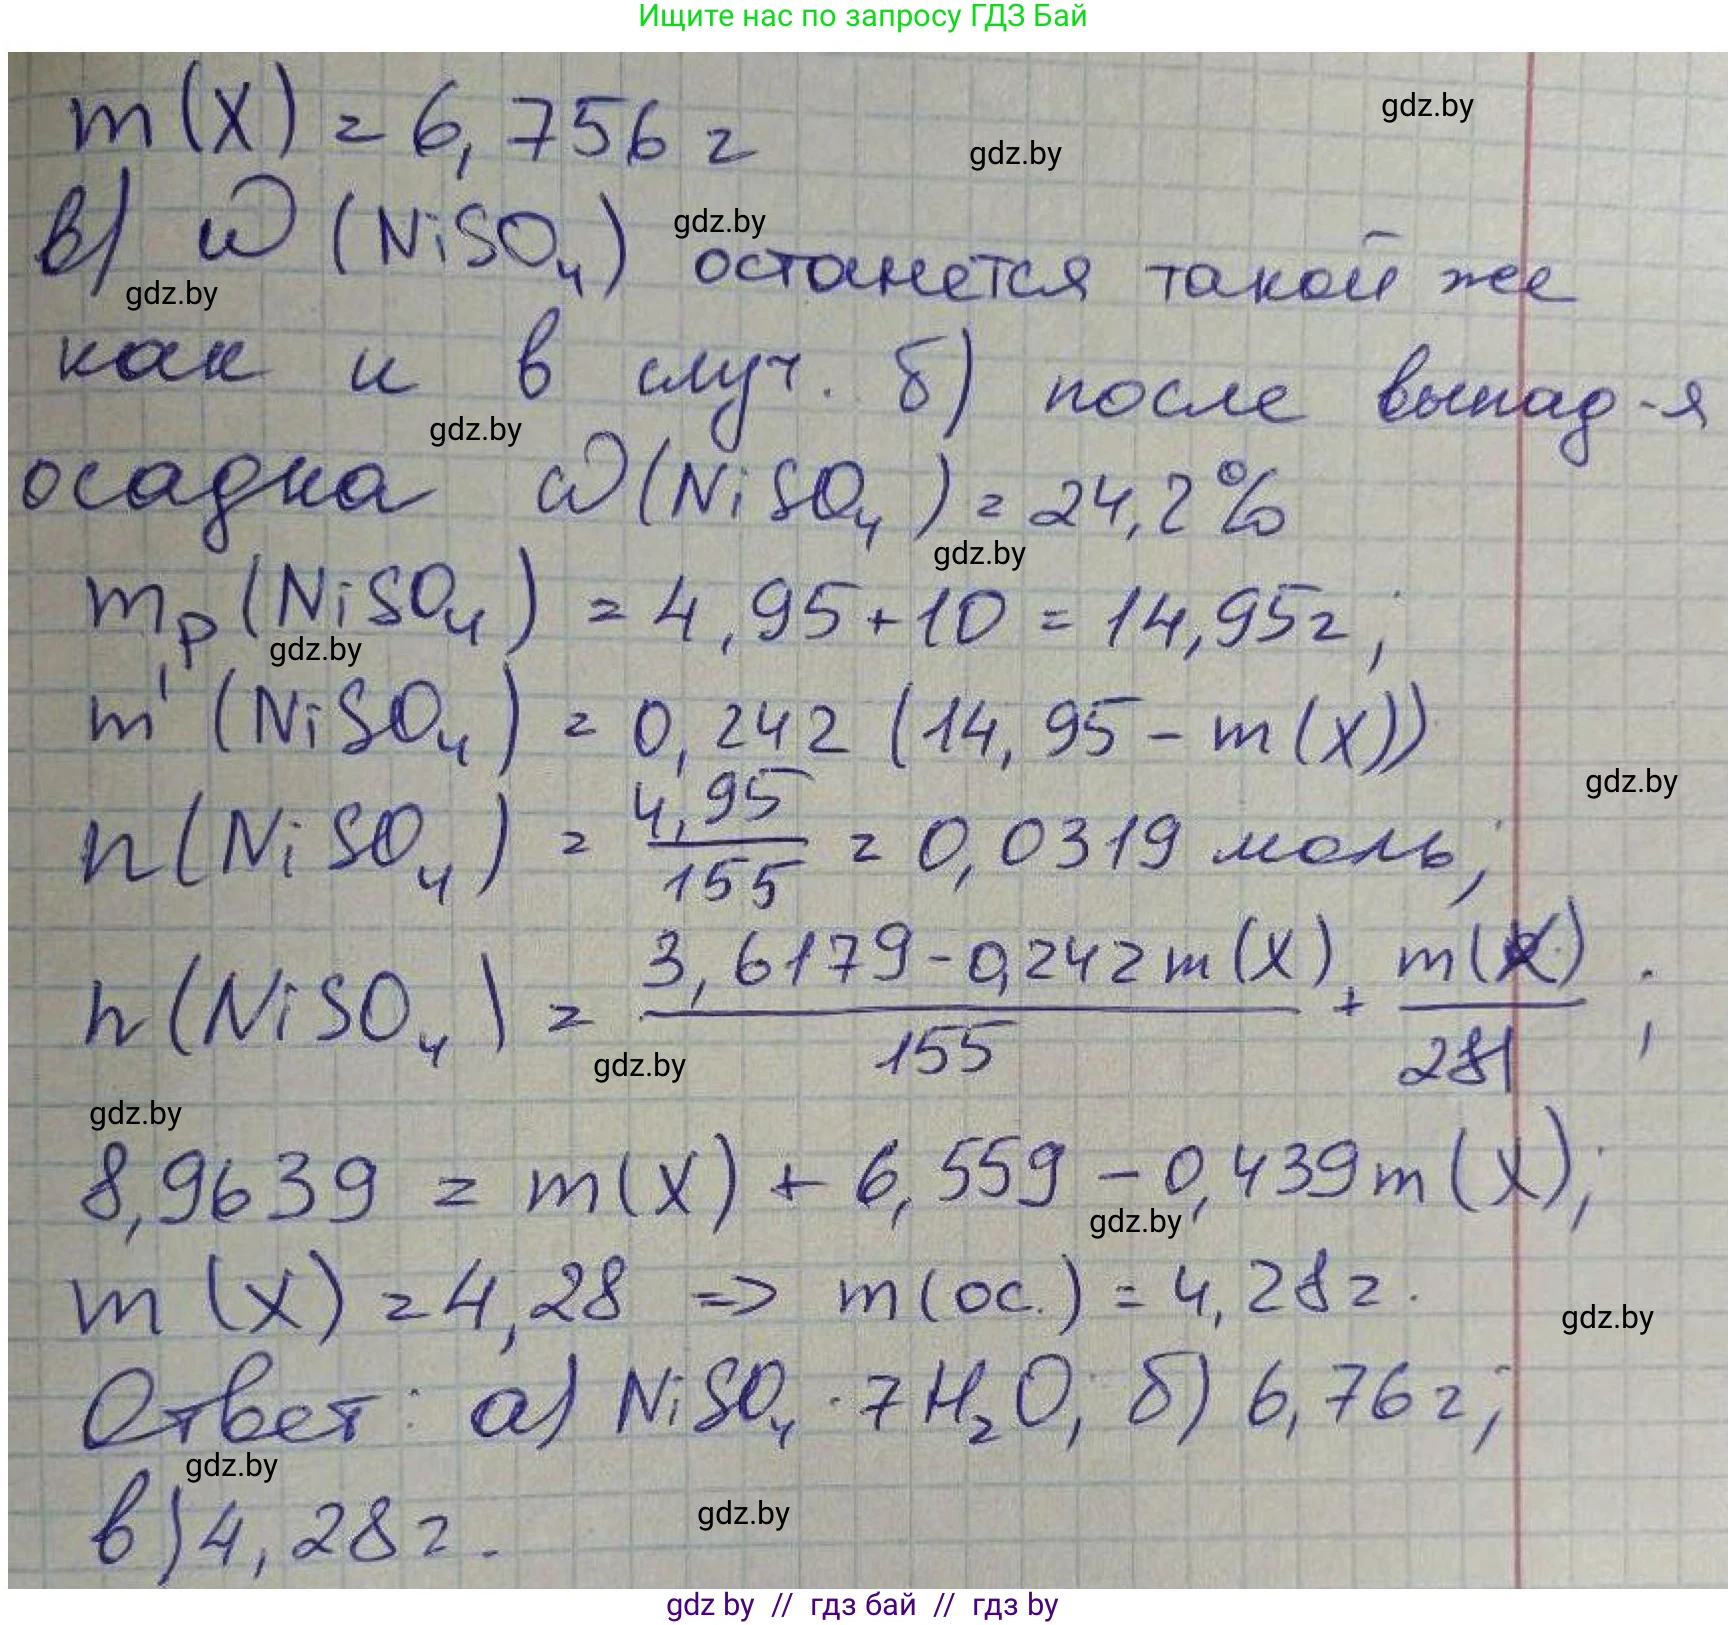 Ищите нас по запросу ГДЗ Бай
m(X) = 6,756 г
gdz.by
gdz.by
в) ω (NiSO₄) останется такой же
gdz.by
gdz.by
как и в случ. б) после выпад-я
gdz.by
осадка ω(NiSO₄) = 24,2%
gdz.by
mр(NiSO₄) = 4,95+10 = 14,95г;
gdz.by
m'(NiSO₄) = 0,242 (14,95 - m(X))
gdz.by
n(NiSO₄) = 4,95/155 = 0,0319 моль;
n(NiSO₄) = 3,6179-0,242m(X)/155 + m(X)/281 ;
gdz.by
gdz.by
8,9639 = m(X) + 6,559 - 0,439m(X);
gdz.by
m(X) = 4,28 => m(ос.) = 4,28г.
gdz.by
Ответ: а) NiSO₄·7H₂O; б) 6,76г;
gdz.by
в) 4,28г.
gdz.by
gdz by // гдз бай // гдз by